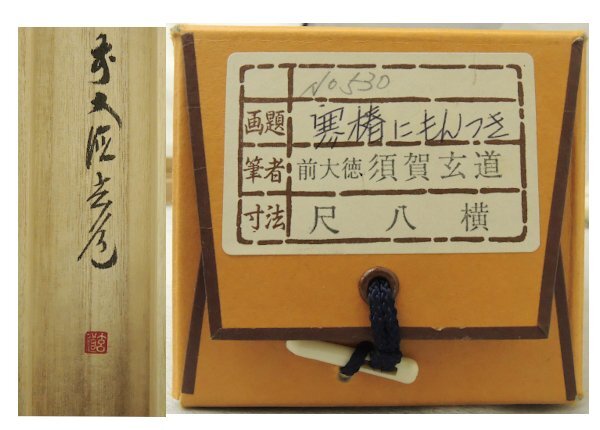 前大徳玄道
No 530
画題 寒椿にもんつき
筆者 前大徳 須賀玄道
寸法 尺八横